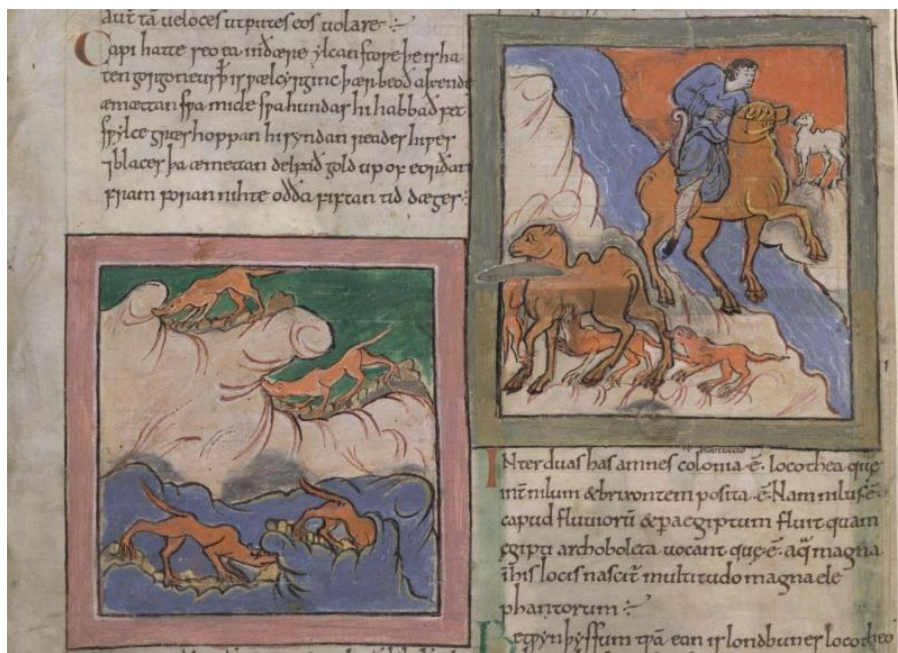 aut tā ueloces ut putes eos uolare :÷
Capi hatte seo ea in ðære ylcan stoƿe þe is ha
ten gorgoneus ꝥ is ƿælcyrginc þær beoð acende
æmættan sƿa micle sƿa hundas hi habbað fet
sƿylce græshoppan hi syndan reades hiƿes
⁊ blaces þa æmettan delfað gold up of eorðan
fram foran nihte oððā fiftan tid dæges :
INter duas has amnes colonia .ē. locothea que
int̄ nilum & brixontem posita .ē. Nam nilus .ē.
capud fluuiorū & p aegiptum fluit quam
ęgipti archoboleta uocant quę .ē. aq̄ magna
inhis locis nascit̄ multitudo magna ele
phantorum :÷
þyssum tƿā ean is londbunes locotheo